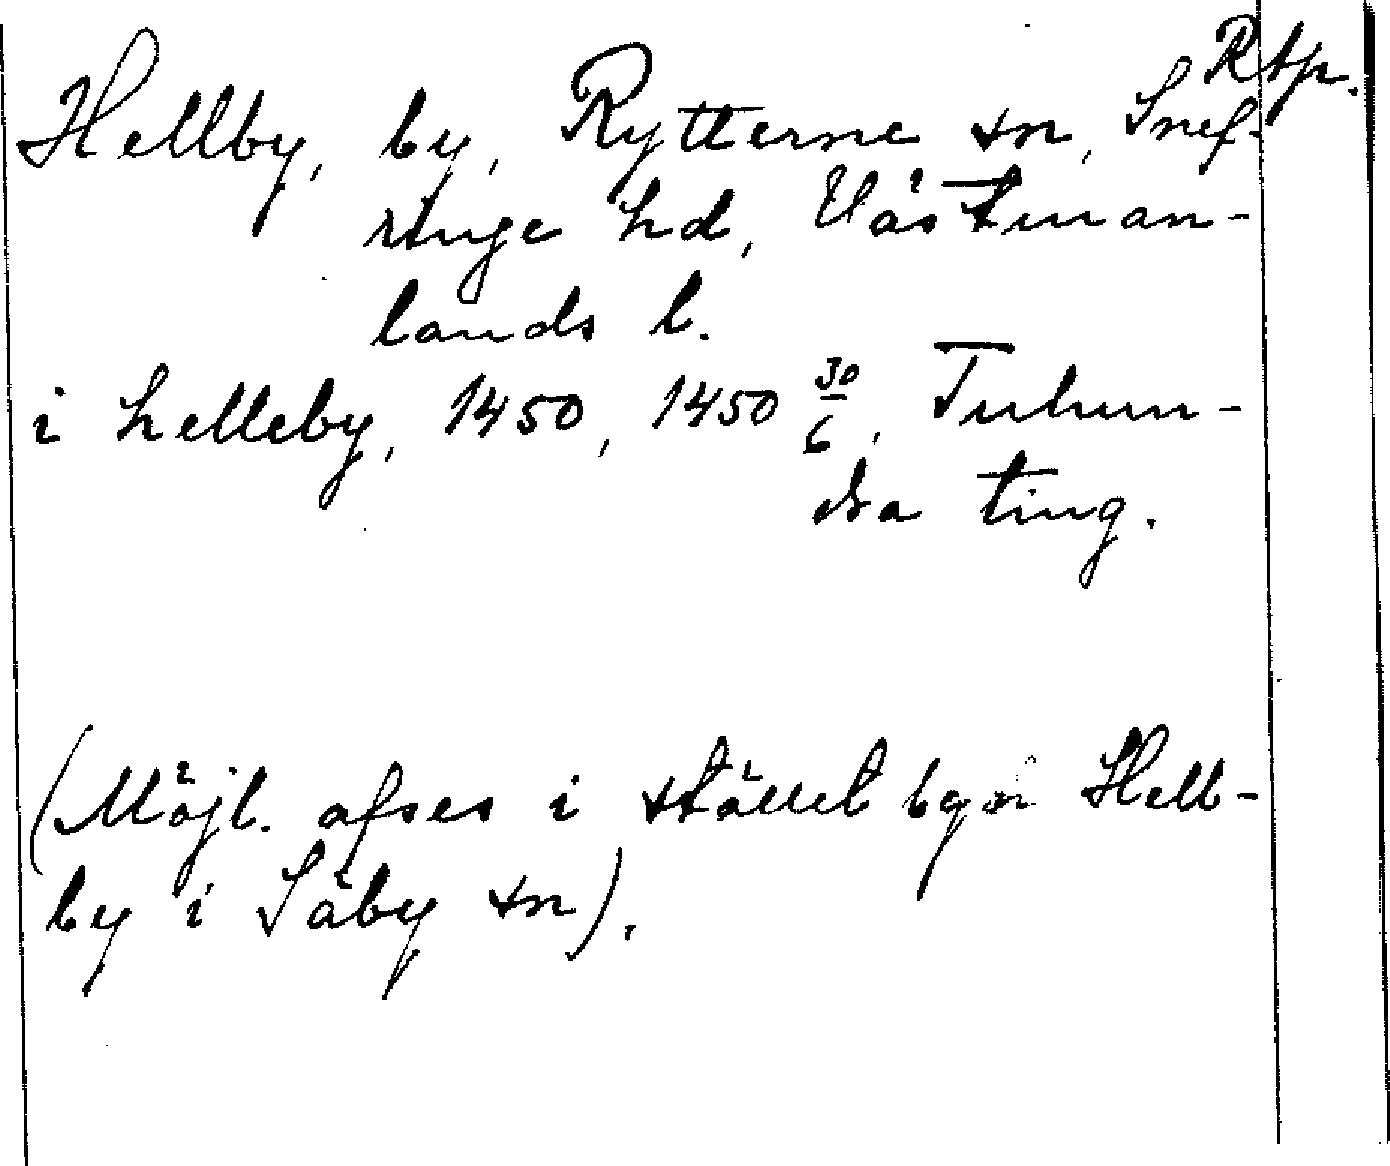 Rtp.
Hellby, by, Rytterne sn, Snef-
ringe hd, Västman-
lands l.
i helleby, 1450, 1450 30/6, Tuhun-
dra ting.
(Möjl. afses i stället byn Hell-
by i Säby sn).